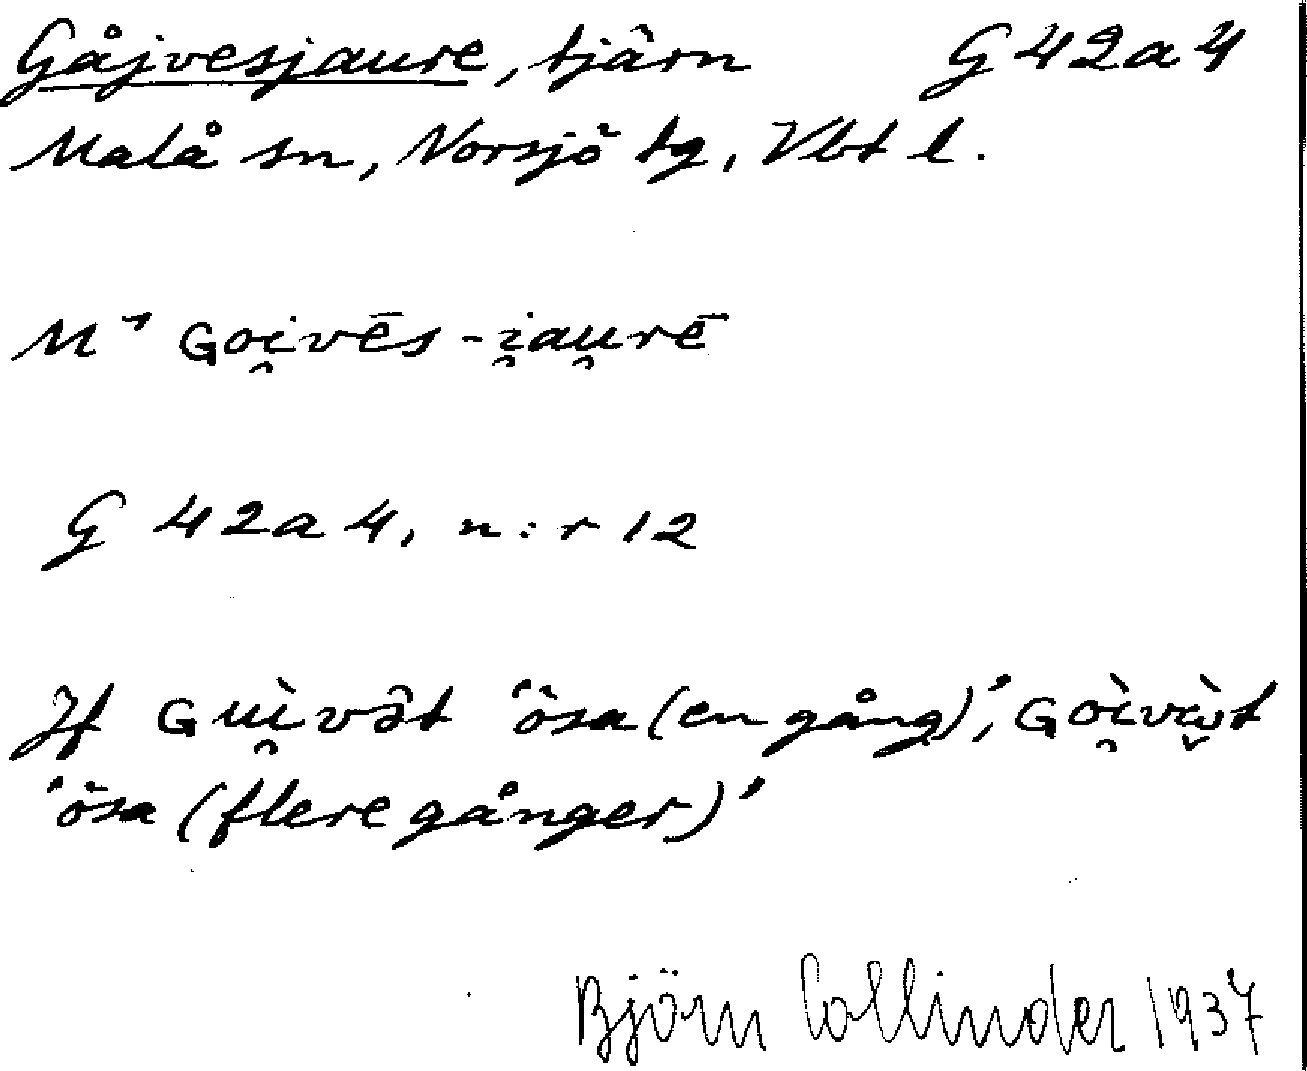 Gåjvesjaure, tjärn G 42a4
Malå sn, Norsjö tg, Vbt l.
M⁻¹ Goi̯vēs-i̯au̯rē
G 42a4, n:r 12
Jf Guì̯vət 'ösa (en gång)', Goì̯vὼ̬t
'ösa (flere gånger)'
Björn Collinder 1937